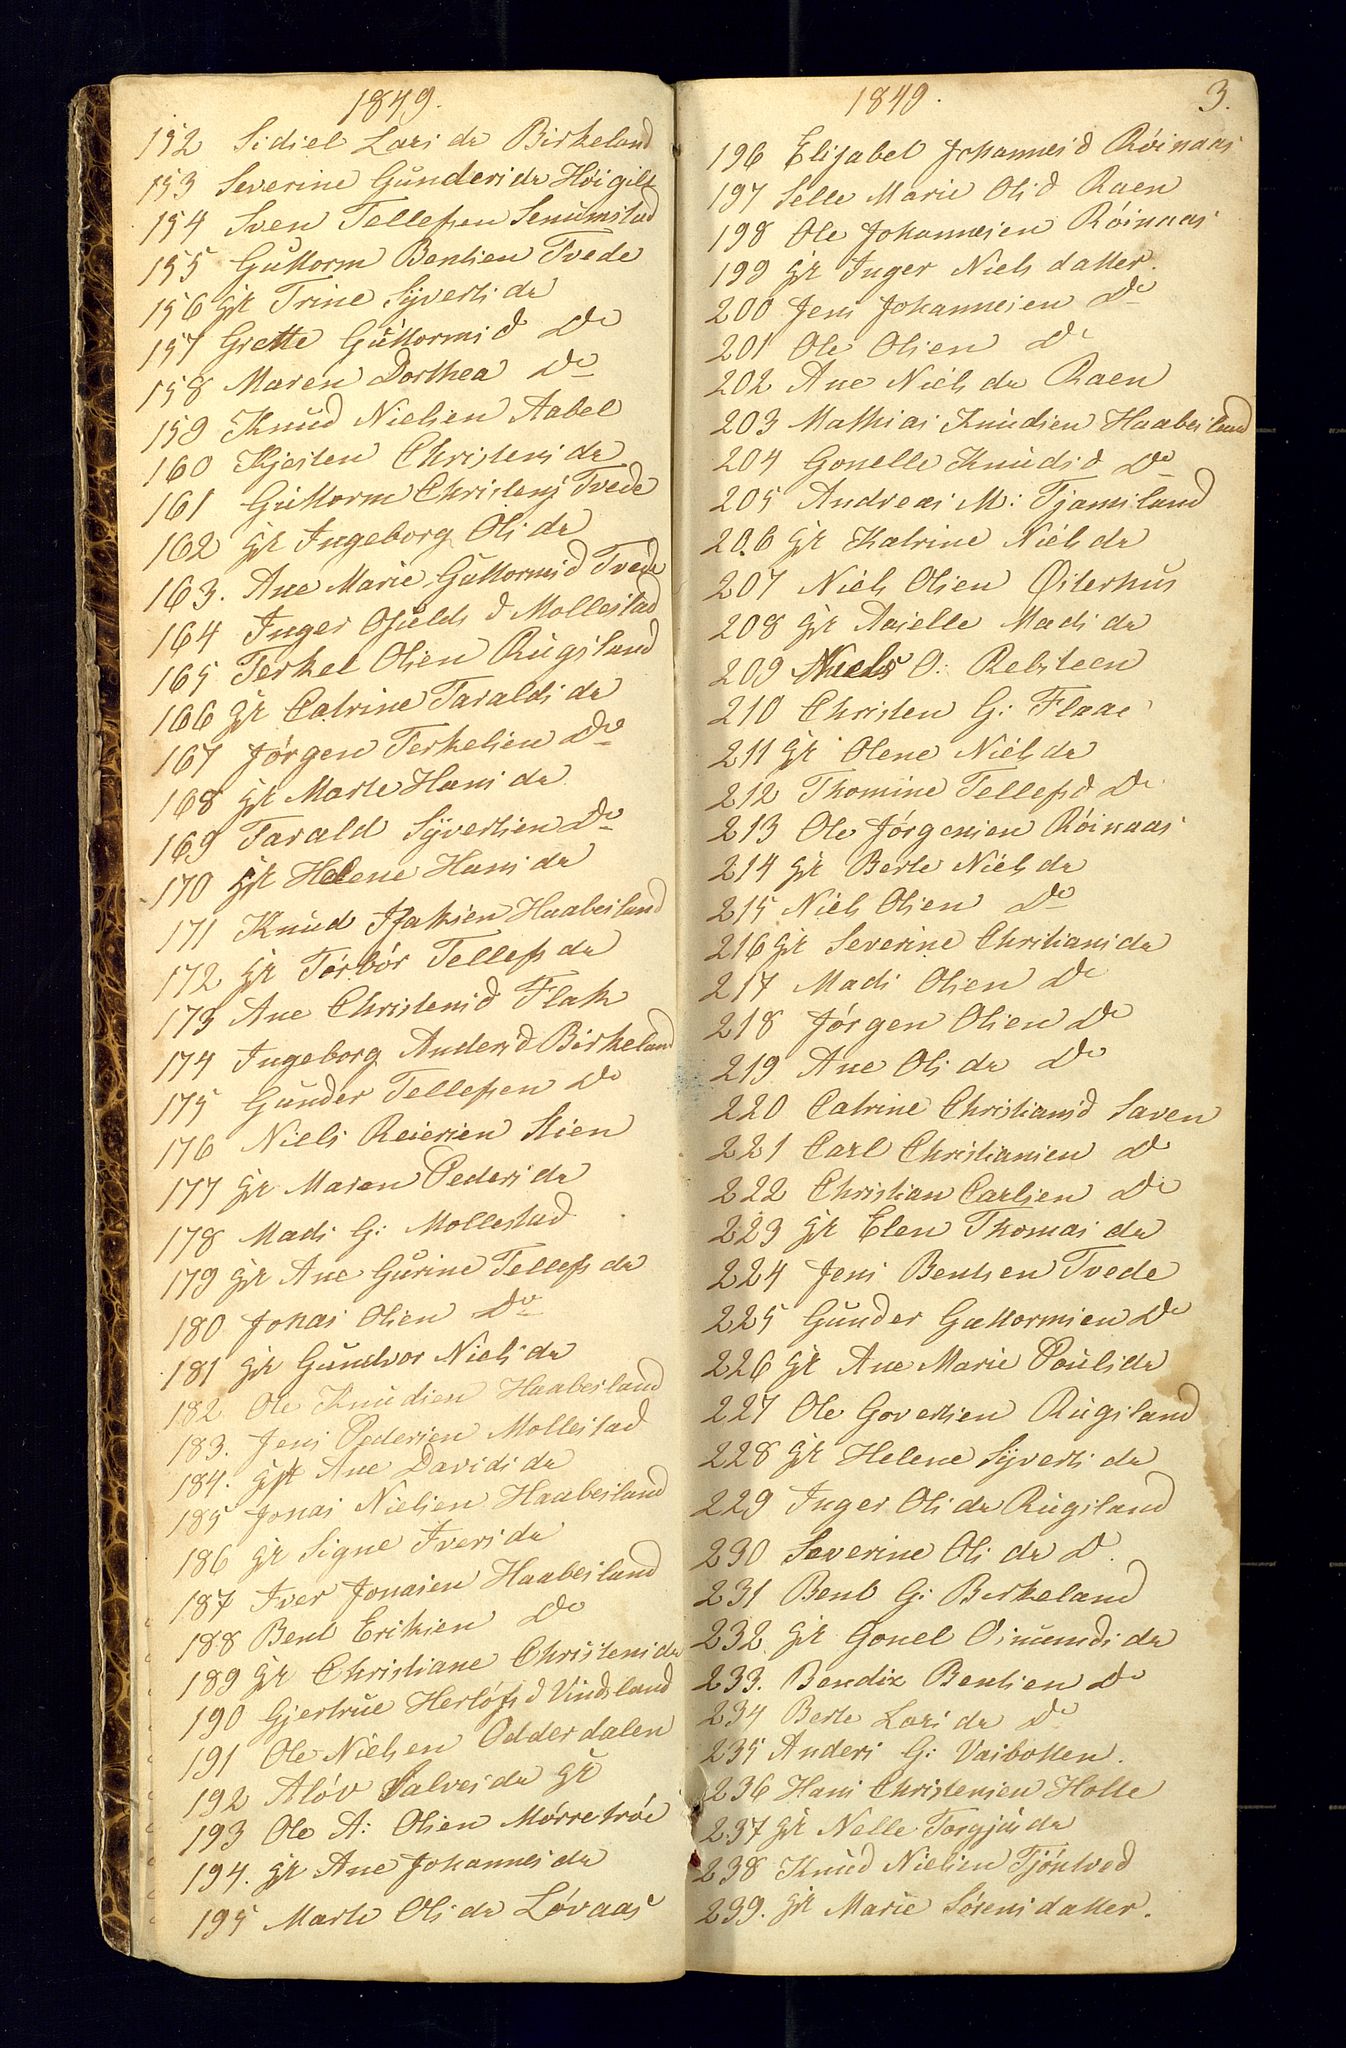 1849.
152 Sidsel Lars da Birkeland
153 Severine Gunders da Høigilt
154 Sven Tellefsen Senumstad
155 Guttorm Bentsen Tvede
156 gk Trine Syverts da
157 Grette Guttorms d Do
158 Maren Dorthea Do
159 Knud Nielsen Aabel
160 Kjesten Christens da
161 Guttorm Christens Tvede
162 gk Ingeborg Ols da
163. Ane Marie Guttorms d Tvede
164 Inger Ofields d Mollestad
165 Terkel Olsen Rugsland
166 gk Catrine Taralds da
167 Jørgen Terkelsen Do
168 gk Marte Hans da
169 Tarald Syvertsen Do
170 gk Helene Hans da
171 Knud Isaksen Haabesland
172 gk Torbør Tellefs da
173 Ane Christens d Flak
174 Ingeborg Anders d Birkeland
175 Gunder Tellefsen Do
176 Niels Reiersen Stien
177 gk Maren Peders da
178 Mads G: Mollestad
179 gk Ane Gurine Tellefs da
180 Jonas Olsen Do
181 gk Gundvor Niels da
182 Ole Knudsen Haabesland
183. Jens Pedersen Mollestad
184. gk Ane Davids da
185 Jonas Nielsen Haabesland
186 gk Signe Ivers da
187 Iver Jonasen Haabesland
188 Bent Eriksen Do
189 gk Christiane Christens da
190 Gjertrue Herløfs d Vindsland
191 Ole Nielsen Odderdalen
192 Aløv Salves da gk
193 Ole A: Olsen Mørretrøe
194. gk Ane Johannes da
195 Marte Ols da Løvaas
1849. 3.
196 Elisabet Johannes d Røinaas
197 Selle Marie Ols d Raen
198 Ole Johannesen Røinaas
199 gk Inger Niels datter.
200 Jens Johannesen Do
201 Ole Olsen Do
202 Ane Niels da Raen
203 Mathias Knudsen Haabesland
204 Gonelle Knuds d Do
205 Andreas M: Tjamsland
206 gk Katrine Niels da
207 Niels Olsen Østerhus
208 gk Aaselle Mads da
209 Niels O: Relsteen
210 Christen G: Flaae
211 gk Olene Niels da
212 Thomine Tellefs d Do
213 Ole Jørgensen Røinaas
214 gk Berte Niels da
215 Niels Olsen Do
216 gk Severine Christians da
217 Mads Olsen Do
218 Jørgen Olsen Do
219 Ane Ols da Do
220 Catrine Christians d Saven
221 Carl Christiansen Do
222 Christian Carlsen Do
223 gk Elen Thomas da
224 Jens Bentsen Tvede
225 Gunder Guttormsen Do
226 gk Ane Marie Pouls da
227 Ole Govertsen Rugsland
228 gk Helene Syverts da
229 Inger Ols da Rugsland
230 Severine Ols da D.
231 Bent G: Birkeland
232 gk Gonel Osmunds da
233. Bendix Bentsen Do
234 Berte Lars da Do
235 Anders G: Vasbotten.
236 Hans Christensen Holte
237 gk Nelle Torgjus da
238 Knud Nielsen Tjøntved
239. gk Marie Sørens datter.